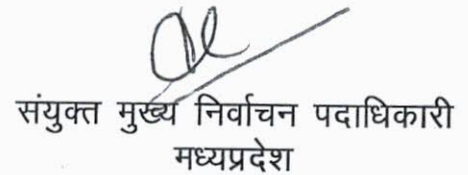 संयुक्त मुख्य निर्वाचन पदाधिकारी
मध्यप्रदेश